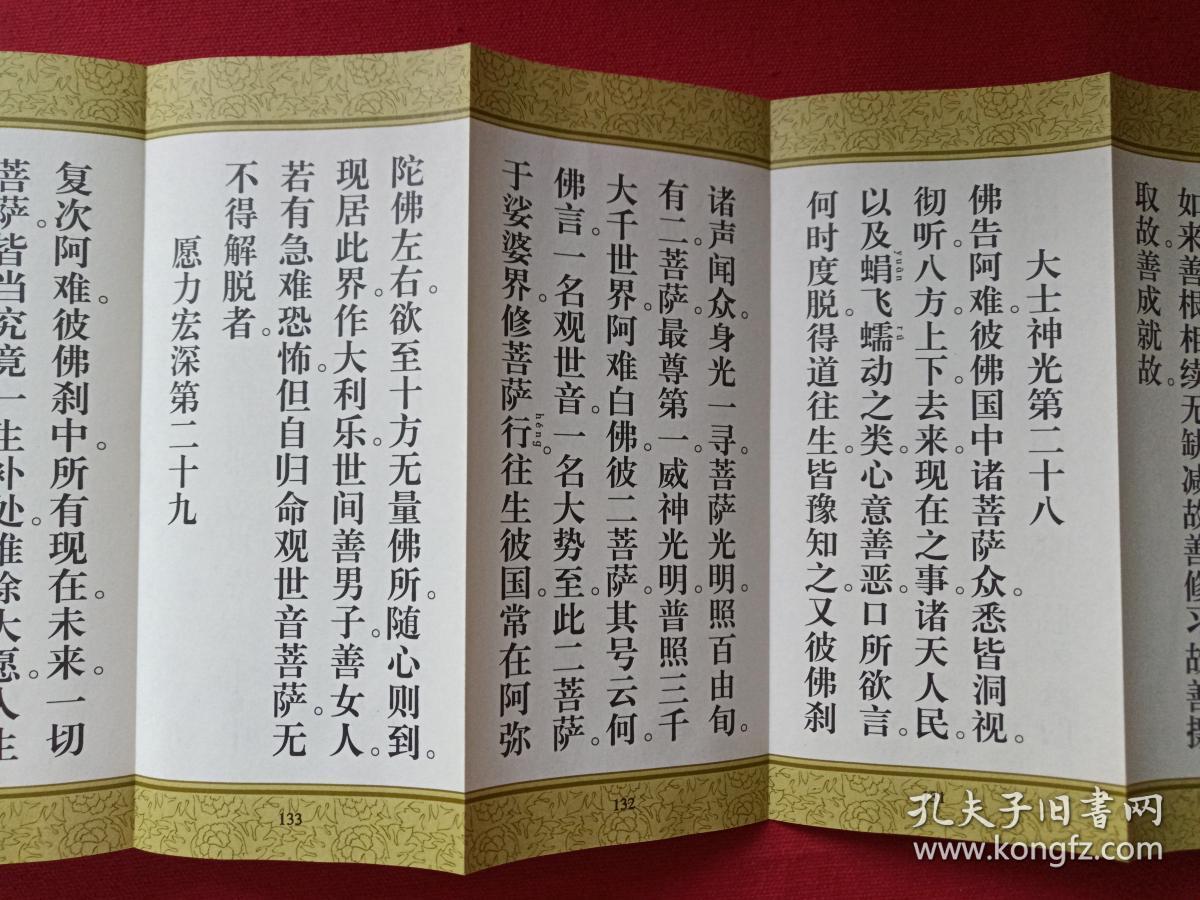 如来善根相续无缺减故善修习故善摄
取故善成就故。
大士神光第二十八
佛告阿难。彼佛国中诸菩萨众。悉皆洞视。
彻听。八方。上下。去来。现在之事。诸天人民。
yuān rú
以及蜎飞蠕动之类。心意善恶。口所欲言。
何时度脱。得道往生。皆豫知之。又彼佛刹
诸声闻众。身光一寻。菩萨光明。照百由旬。
有二菩萨。最尊第一。威神光明。普照三千
大千世界。阿难白佛。彼二菩萨。其号云何。
佛言。一名观世音。一名大势至。此二菩萨。
héng
于娑婆界。修菩萨行。往生彼国。常在阿弥
陀佛左右。欲至十方无量佛所。随心则到。
现居此界。作大利乐。世间善男子。善女人。
若有急难恐怖。但自归命观世音菩萨。无
不得解脱者。
愿力宏深第二十九
复次阿难。彼佛刹中。所有现在。未来。一切
菩萨。皆当究竟一生补处。唯除大愿。入生
133
132
孔夫子旧書网
www.kongfz.com